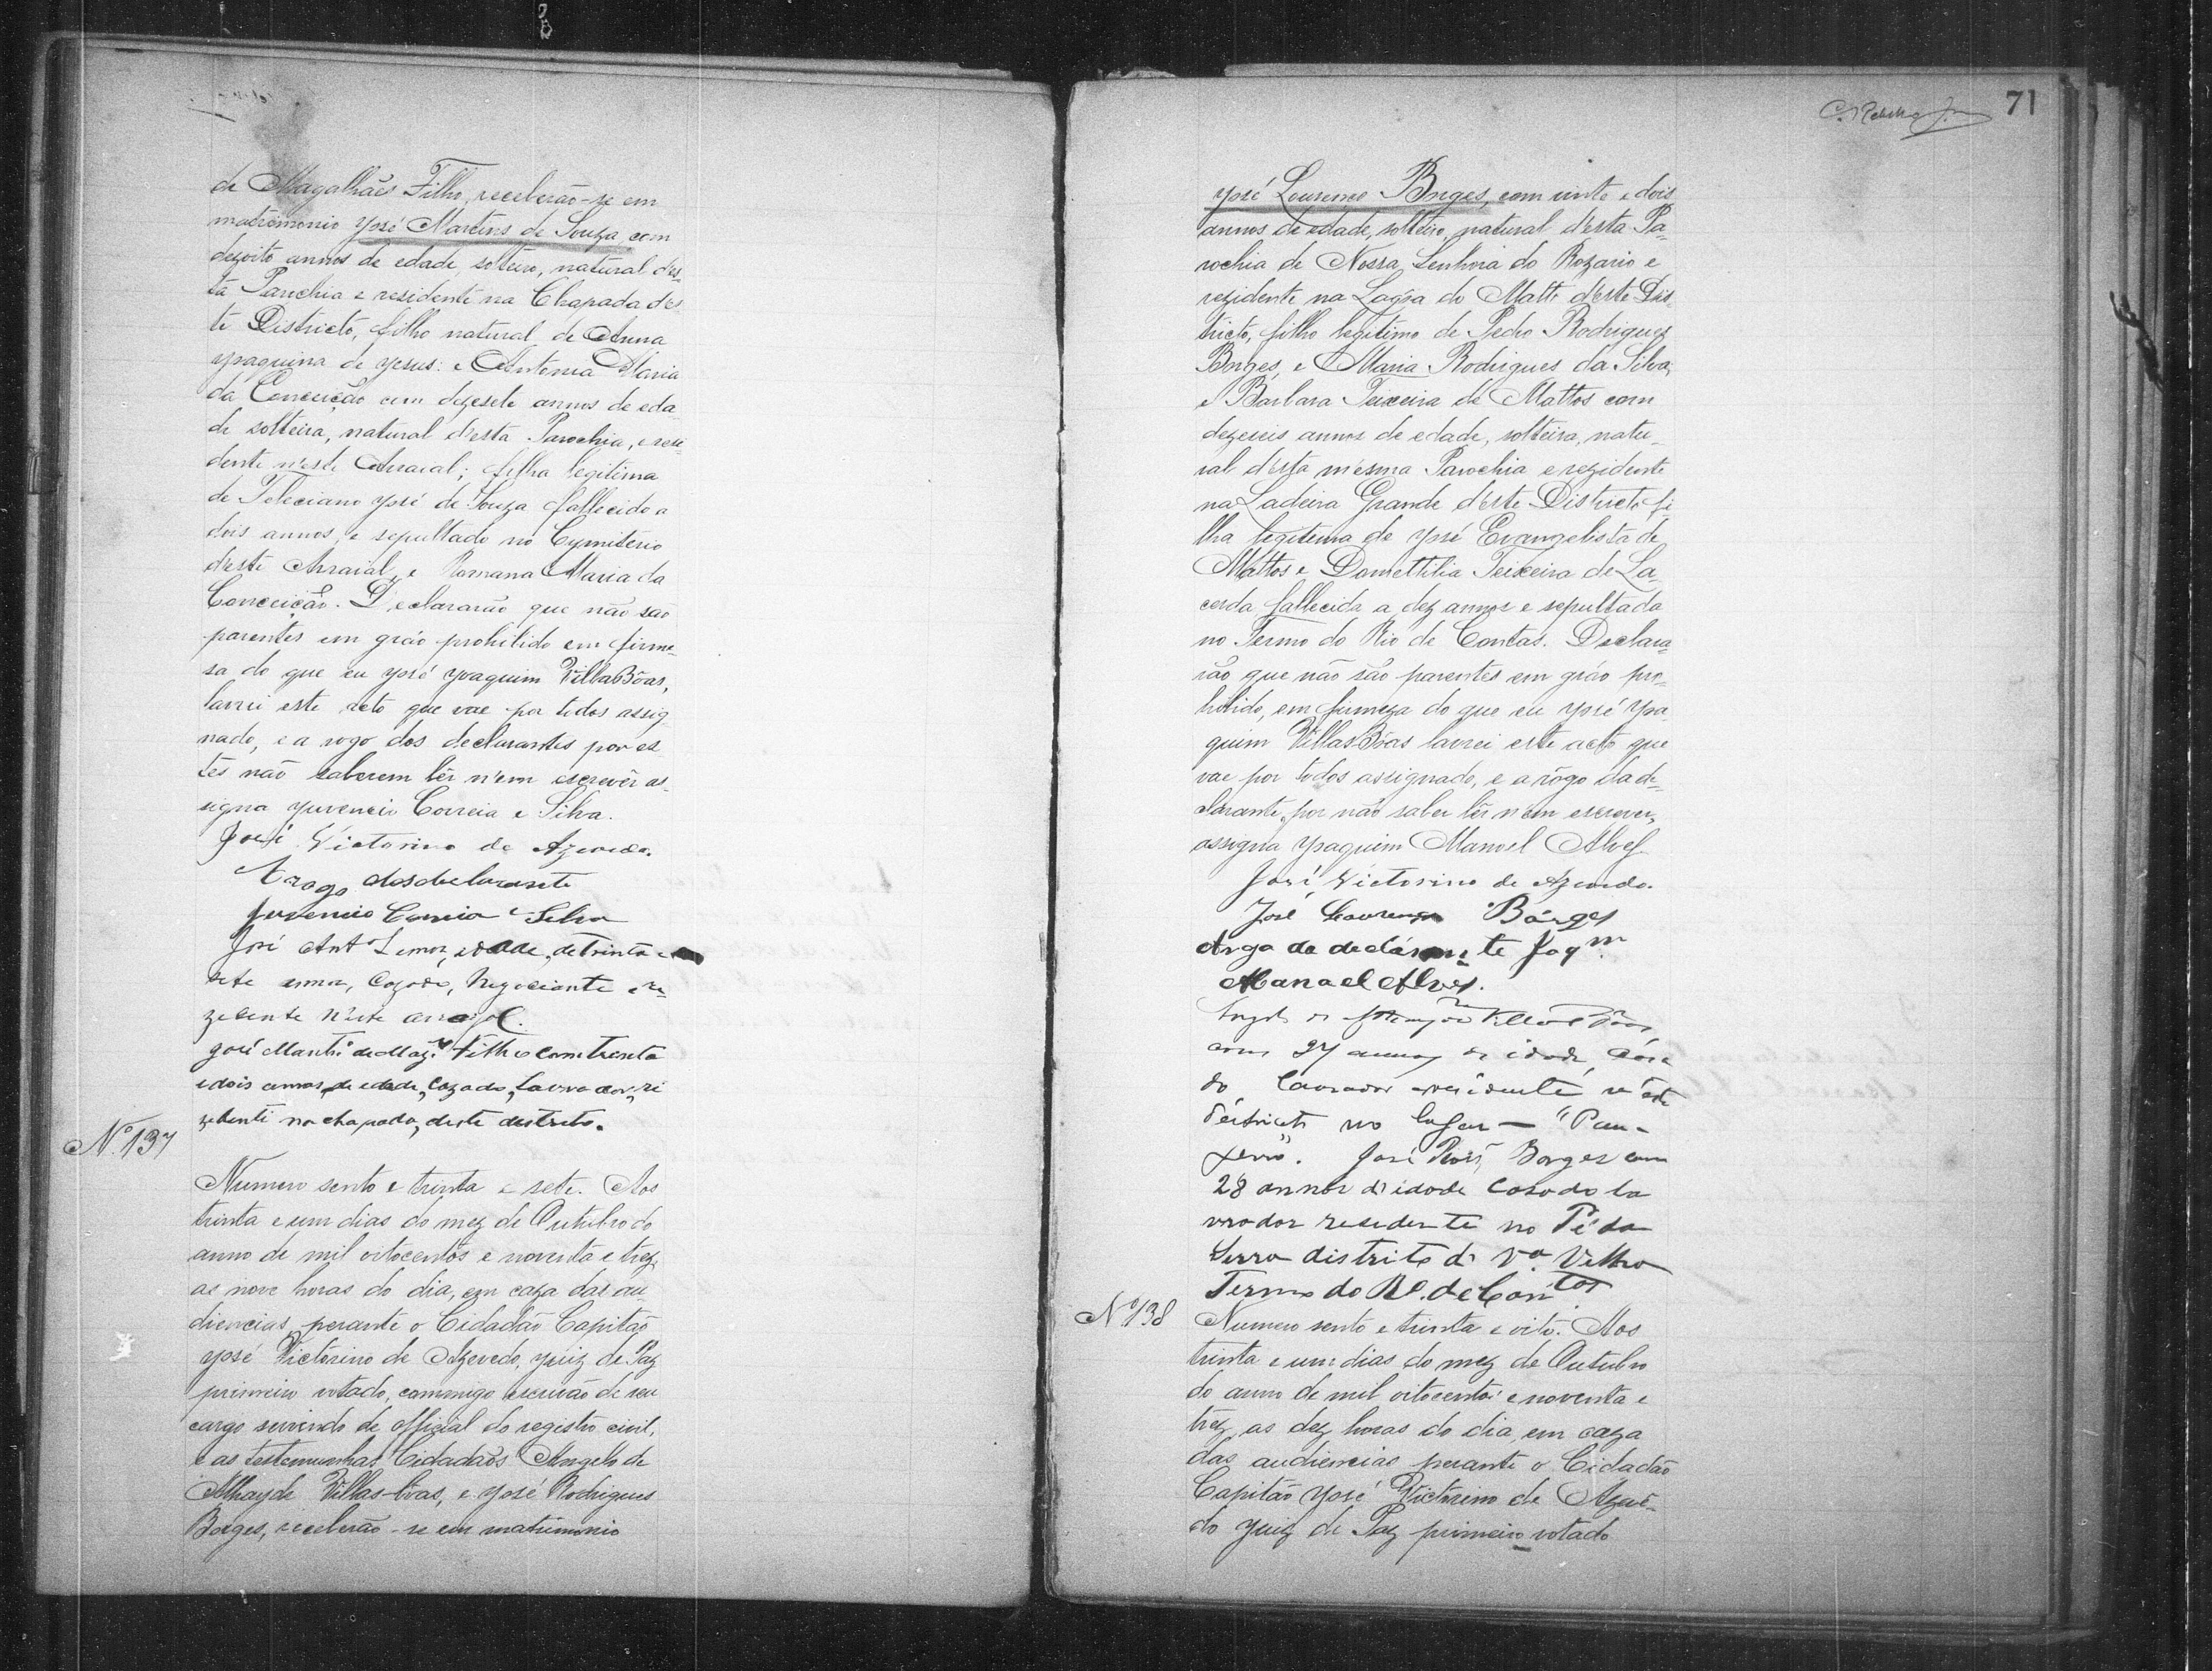 de Magalhães Filho, receberão-se em
matrimonio José Martins de Souza, com
dezoito annos de edade, solteiro, natural d'es-
ta Parochia e residente na Chapada d'es-
te Districto, filho natural de Anna
Joaquina de Jesus: e Antonia Maria
da Conceição com dezesete annos de eda
de solteira, natural d'esta Parochia, e resi
dente n'este Arraial; filha legitima
de Feleciano José de Souza fallecido a
dois annos, e sepultado no Cymiterio
d'este Arraial, e Romana Maria da
Conceição. Declararão que não são
parentes em gráo prohibido em firme-
sa do que eu José Joaquim Villas Bôas,
lavrei este acto que vae por todos assig-
nado, e a rogo dos declarantes por es-
tes não saberem lêr n'em escrevêr as-
signa Juvencio Correia e Silva.
José Victorino de Azevedo.
A rogo dos declarante
Juvencio Correia e Silva
José Antº Lemos, edade, de trinta e
sete annos, Cazado, Negociante e re
zidente n'este arraial.
José Martis de Mages Filho com trenta
e dois annos, de edade, Cazado, Lavrador, ri
zedenti na chapada, deste destrito.
Nº 137
Numero sento e trinta e sete. Aos
trinta e um dias do mez de Outubro do
anno de mil oitocentos e noventa e trez,
as nove horas do dia, em caza das au-
diencias, perante o Cidadão Capitão
José Victorino de Azevedo, Juiz de Paz
primeiro votado, commigo escrivão de seu
cargo servindo de official do registro civil,
e as testemunhas Cidadãos Angelo de
Athayde Villas-bôas, e José Rodrigues
Borges, receberão-se em matrimonio
71
José Lourenço Borges, com vinte e dois
annos de edade, solteiro, natural d'esta Pa-
rochia de Nossa Senhora do Rozario e
rezidente na Lagôa do Matto d'este Dis-
tricto, filho legitimo de Pedro Rodrigues
Borges, e Maria Rodrigues da Silva,
e Barbara Teixeira de Mattos com
dezeseis annos de edade, solteira, natu-
ral d'esta mesma Parochia e rezidente
na Ladeira Grande d'este Districto fi-
lha legitema de José Evangelista de
Mattos e Domettilia Teixeira de La-
cerda, fallecida a dez annos e sepultada
no Termo do Rio de Contas. Declara-
rão que não são parentes em gráo pro-
hibido, em firmeza do que eu José Joa-
quim Villas Bôas lavrei este acto que
vae por todos assignado, e a rôgo da de-
clarante, por não saber lêr n'em escrever,
assigna Joaquim Manoel Alves.
José Victorino de Azevedo.
José Lourenço Bórges
Arogo da declárante Joqm
Manael Alves.
Villas Bôas
com 27 annos de idade, Cása
do Lavrador e residente n'este
destricto no lugar — "Pau-
ferro". José Rois Borges com
28 annos di idade Cazado la
vrador residente no Pé da
Serra distrito di Va Velha
Termo do R. de Contas
Nº 138
Numero sento e trinta e oito. Aos
trinta e um dias do mez de Outubro
do anno de mil oitocentos e noventa e
trez, as dez horas do dia, em caza
das audiencias perante o Cidadão
Capitão José Victorino de Azevê-
do Juiz de Paz primeiro votado